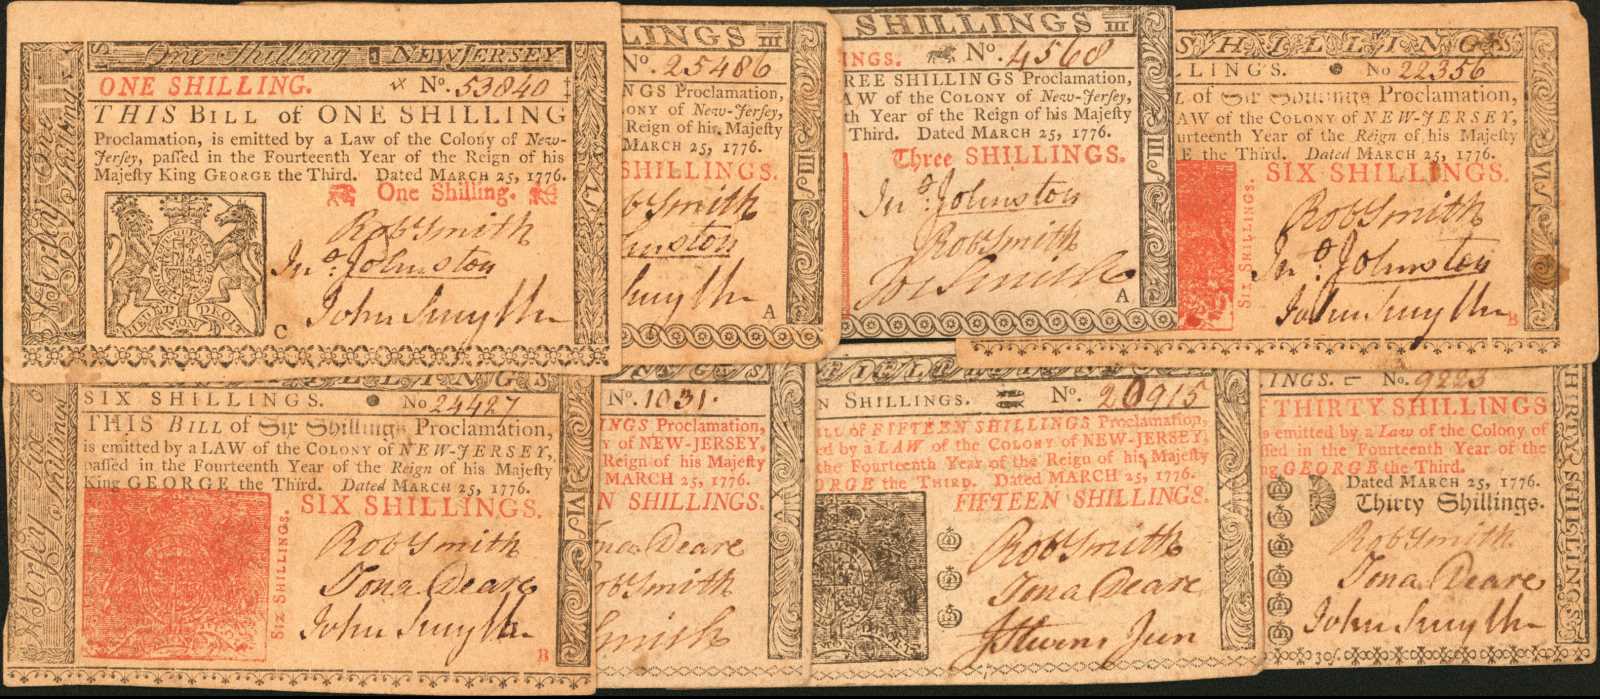 One Shilling 1 NEW JERSEY
ONE SHILLING. No. 53840
THIS BILL of ONE SHILLING
Proclamation, is emitted by a Law of the Colony of New-
Jersey, paſſed in the Fourteenth Year of the Reign of his
Majeſty King GEORGE the Third. Dated MARCH 25, 1776.
One Shilling.
Robt Smith
Jno. Johnston
John Smyth
C
N. Jerſey One Shilling
LINGS III
No. 25486
NGS Proclamation,
ONY of New-Jerſey,
Reign of his Majeſty
MARCH 25, 1776.
SHILLINGS.
bt Smith
hnston
Smyth
A
III
SHILLINGS III
INGS. No. 4568
REE SHILLINGS Proclamation,
AW of the COLONY of New-Jerſey,
th Year of the Reign of his Majeſty
Third. Dated MARCH 25, 1776.
Three SHILLINGS.
Jno. Johnston
Robt Smith
Jos Smith
A
III
SHILLINGS
LINGS. No 22356
L of Six Shillings Proclamation,
AW of the COLONY of NEW-JERSEY,
urteenth Year of the Reign of his Majeſty
E the Third. Dated MARCH 25, 1776.
SIX SHILLINGS.
SIX SHILLINGS.
Robt Smith
Jno. Johnston
John Smyth
B
VIS
LLINGS
SIX SHILLINGS. No 24427
THIS BILL of Six Shillings Proclamation,
is emitted by a LAW of the COLONY of NEW-JERSEY,
paſſed in the Fourteenth Year of the Reign of his Majeſty
King GEORGE the Third. Dated MARCH 25, 1776.
SIX SHILLINGS.
SIX SHILLINGS.
Robt Smith
Jona Deare
John Smyth
B
N. Jerſey Six Shillings
VIS
No. 1031.
INGS Proclamation,
Y of NEW-JERSEY,
Reign of his Majeſty
MARCH 25, 1776.
N SHILLINGS.
ona Deare
obt Smith
Smith
N SHILLINGS. No. 20915
ILL of FIFTEEN SHILLINGS Proclamation,
ed by a LAW of the COLONY of NEW-JERSEY,
the Fourteenth Year of the Reign of his Majeſty
ORGE the THIRD. Dated MARCH 25, 1776.
FIFTEEN SHILLINGS.
Robt Smith
Jona Deare
J Stevens Jun
INGS. No. 9223
F THIRTY SHILLINGS
s emitted by a Law of the Colony of
ſſed in the Fourteenth Year of the
ng GEORGE the Third.
Dated MARCH 25, 1776.
Thirty Shillings.
Robt Smith
Jona Deare
John Smyth
30ſ.
THIRTY SHILLINGS